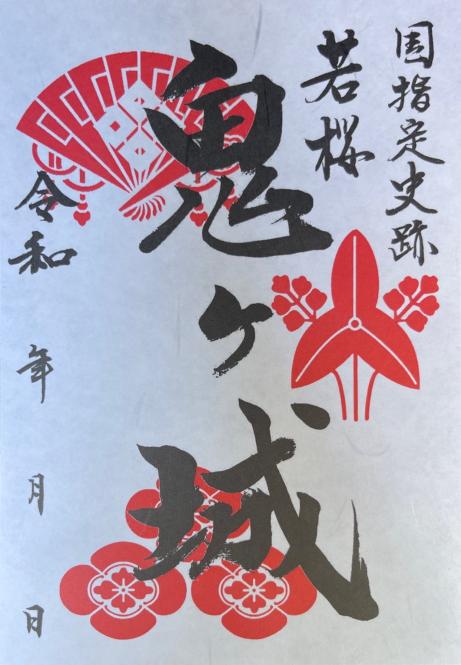 国指定史跡
若桜
鬼ヶ城
令和
年
月
日